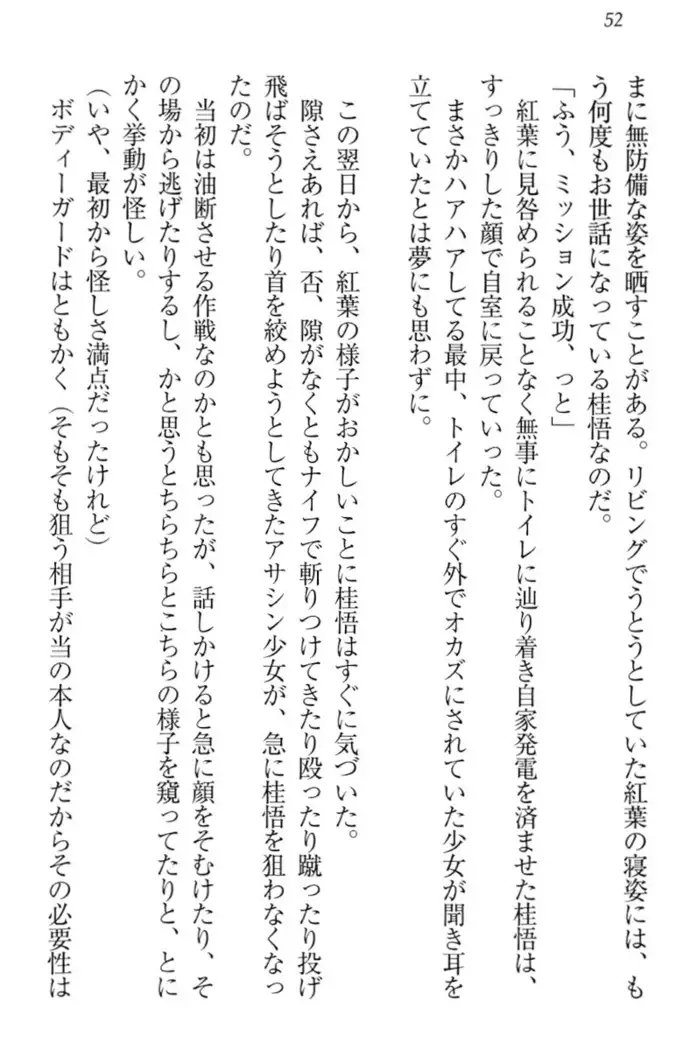 52
まに無防備な姿を晒すことがある。リビングでうとうとしていた紅葉の寝姿には、も
う何度もお世話になっている桂悟なのだ。
「ふう、ミッション成功、っと」
紅葉に見咎められることなく無事にトイレに辿り着き自家発電を済ませた桂悟は、
すっきりした顔で自室に戻っていった。
まさかハアハアしてる最中、トイレのすぐ外でオカズにされていた少女が聞き耳を
立てていたとは夢にも思わずに。
この翌日から、紅葉の様子がおかしいことに桂悟はすぐに気づいた。
隙さえあれば、否、隙がなくともナイフで斬りつけてきたり殴ったり蹴ったり投げ
飛ばそうとしたり首を絞めようとしてきたアサシン少女が、急に桂悟を狙わなくなっ
たのだ。
当初は油断させる作戦なのかとも思ったが、話しかけると急に顔をそむけたり、そ
の場から逃げたりするし、かと思うとちらちらとこちらの様子を窺ってたりと、とに
かく挙動が怪しい。
（いや、最初から怪しさ満点だったけれど）
ボディーガードはともかく（そもそも狙う相手が当の本人なのだからその必要性は